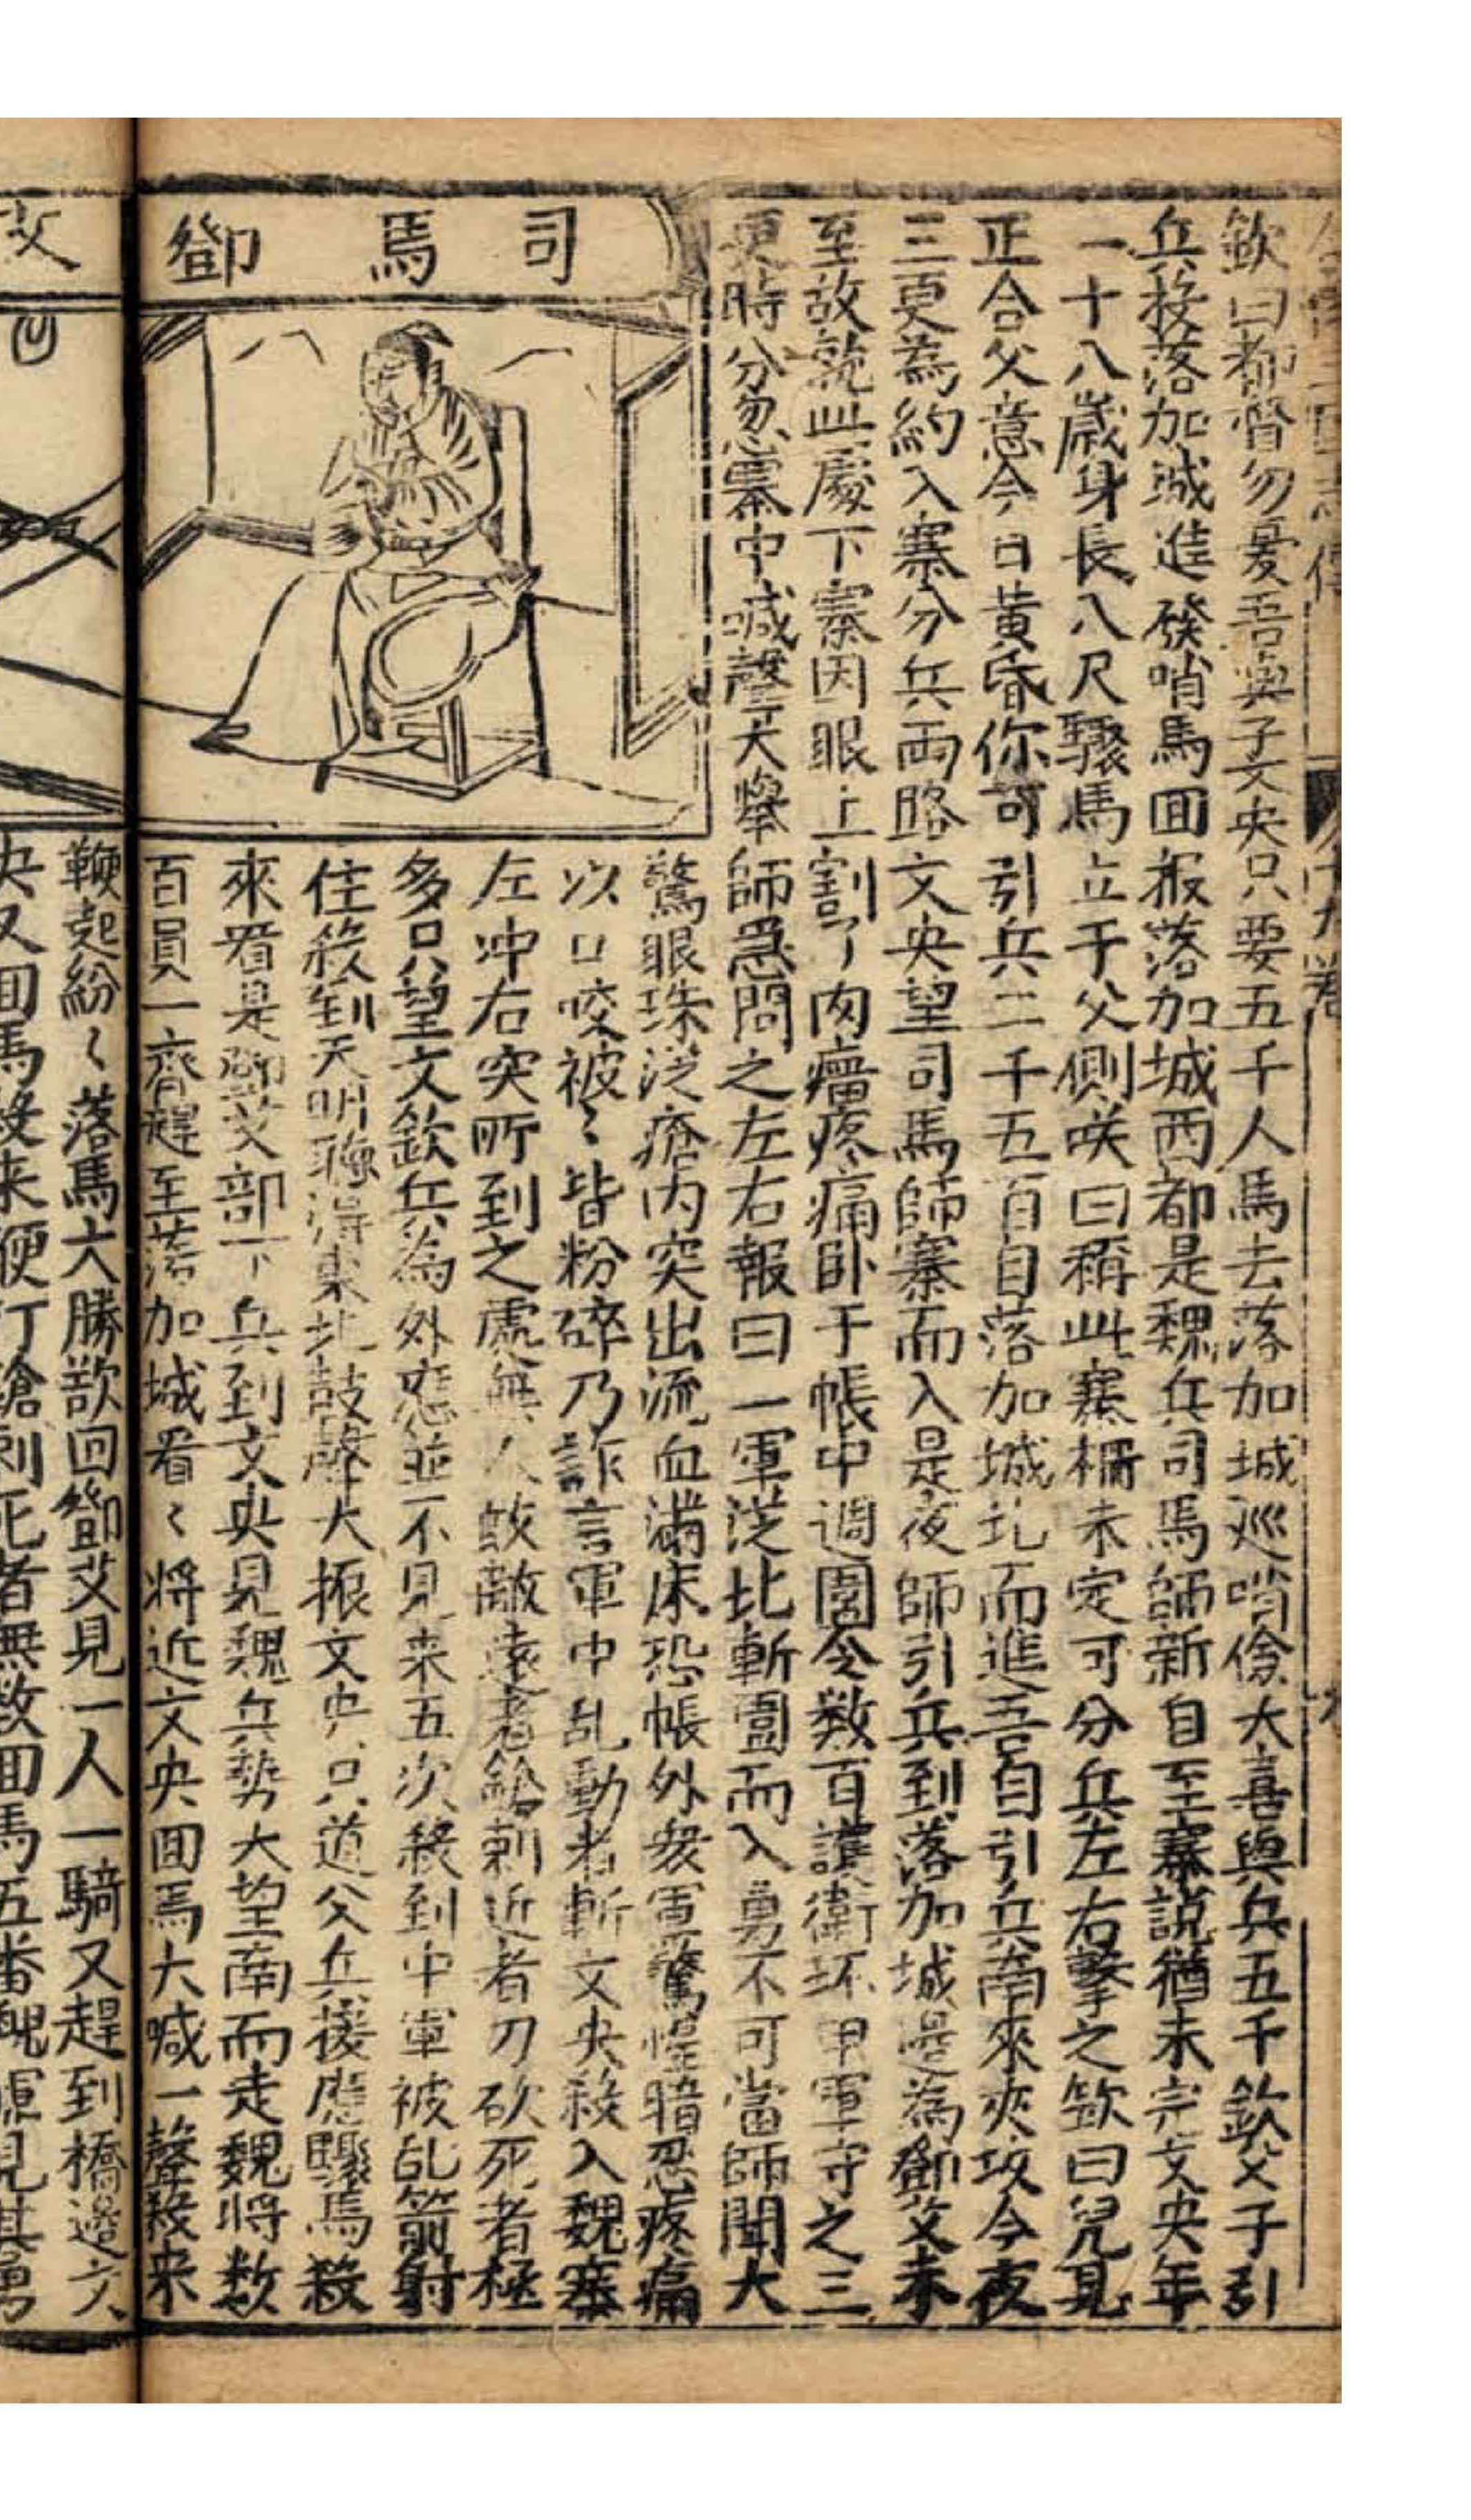 欽曰都督勿憂吾與子文央只要五千人馬去落加城巡哨儉大喜與兵五千欽父子引
兵投落加城進發哨馬回报落加城西都是魏兵司馬師新自至寨說猶未完文央年
一十八歲身長八尺驟馬立于父側咲曰稱此寨柵未定可分兵左右擊之欽曰兒見
正合父意今日黃昏你可引兵二千五百自落加城北而進吾自引兵南來夾攻今夜
三更為約入寨分兵両路文央望司馬師寨而入是夜師引兵到落加城邊為鄧艾未
至故就此處下寨因眼上割了肉瘤疼痛卧于帳中週圍令数百護衛环甲軍守之三
更時分忽寨中喊聲大舉師急問之左右報曰一軍従北斬圍而入勇不可當師聞大
驚眼珠従瘡内突出流血滿床恐帳外衆軍驚惶暗忍疼痛
以口咬被〻皆粉碎乃詐言軍中乱動者斬文央殺入魏寨
左冲右突所到之處無人敢敵遠者鎗刺近者刀砍死者極
多只望文欽兵為外应並不見来五次殺到中軍被乱箭射
住殺到天明聽得東北鼓聲大振文央只道父兵接應驟馬
來看是鄧艾部下兵到文央見魏兵势大望南而走魏将数
百員一齊趕至落加城看〻将近文央囬馬大喊一聲殺来
司馬鄧
鞭起紛〻落馬大勝欲回鄧艾見一人一騎又趕到橋邊文
央又囬馬殺来便打鎗刺死者無数囬馬五番魏慮見其勇
艾